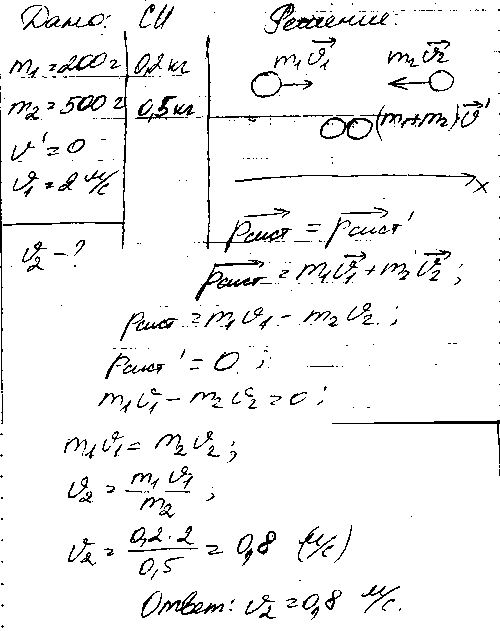 Дано: СИ Решение:
m₁=200г 0,2 кг m₁v⃗₁ m₂v⃗₂
m₂=500г 0,5 кг (m₁+m₂)v⃗'
v'=0
v₁=2 м/с x
v₂-?
p⃗сист = p⃗сист'
p⃗сист = m₁v⃗₁+m₂v⃗₂;
pсист = m₁v₁ - m₂v₂;
pсист' = 0;
m₁v₁ - m₂v₂ = 0;
m₁v₁ = m₂v₂;
v₂ = m₁v₁/m₂;
v₂ = 0,2·2/0,5 = 0,8 (м/с)
Ответ: v₂=0,8 м/с.